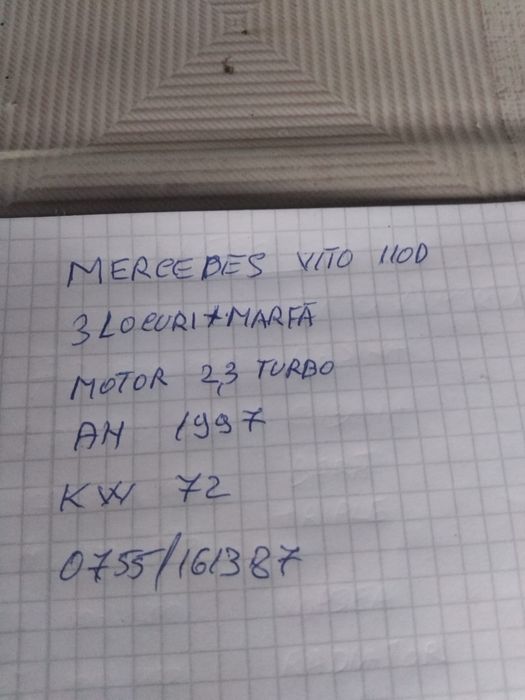 MERCEDES VITO 110D
3 LOCURI + MARFĂ
MOTOR 2,3 TURBO
AN 1997
KW 72
0755/161387